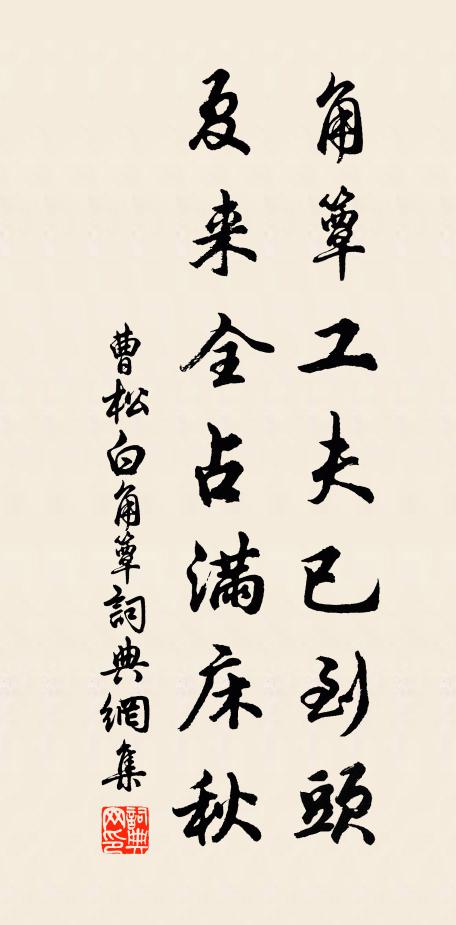 角簟工夫已到頭
夏來全占滿床秋
曹松白角簟詞典網集
詞典
网印